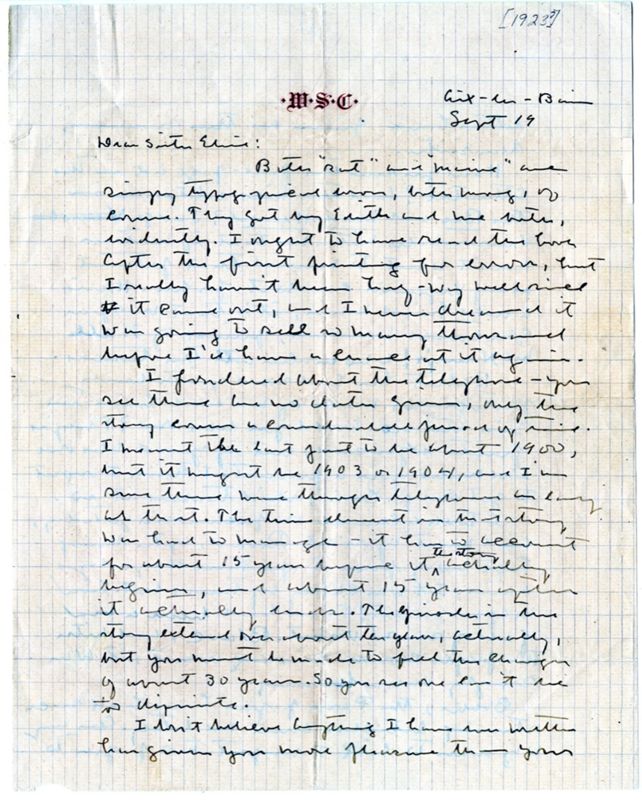 [1923?]
·W·S·C·
Aix-les-Bains
Sept 19
Dear Sister Elsie:
Both "sat" and "maine" are
simply typographical errors, both wrong, of
course. They got by Edith and me both,
evidently. I ought to have read the book
after the first printing for errors, but
I really haven't been very well since
it came out, and I never dreamed it
was going to sell so many thousand
before I'd have a chance at it again.
I pondered about the telephone - you
see there are no dates given, only the
story covers a considerable period of time.
I meant the last part to be about 1900,
but it might be 1903 or 1904, and I'm
sure there were telephones as early
as that. The time element in that story
was hard to manage - it has to account
for about 15 years before it the story actually
begins, and about 15 years after
it actually ends. The episodes in the
story extend over about ten years, actually,
but you must be made to feel the changes
of about 30 years. So you see one can't be
too definite.
I don't believe anything I have ever written
has given you more pleasure than your